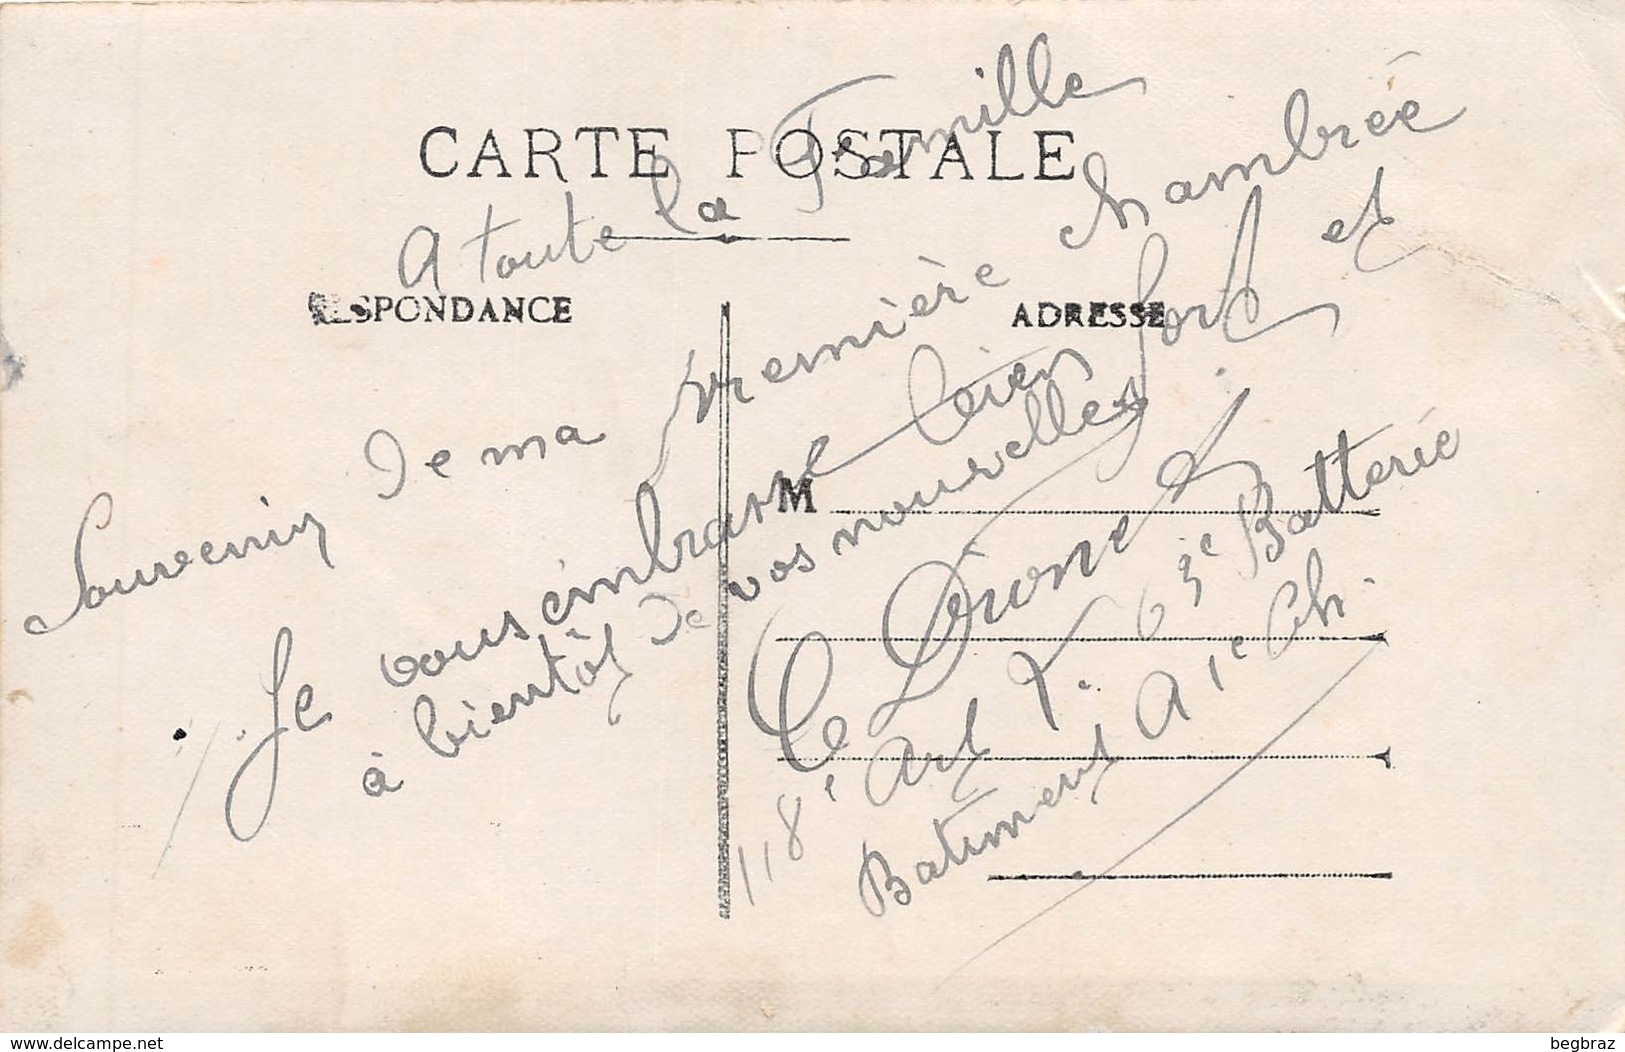 CARTE POSTALE
A toute la Famille
SPONDANCE
ADRESSE
Souvenir de ma première chambrée
Je vous embrasse bien fort et
à bientôt de vos nouvelles.
M
118e Art 63e Batterie
Batiment A 1e Ch.
delcampe.net
begbraz